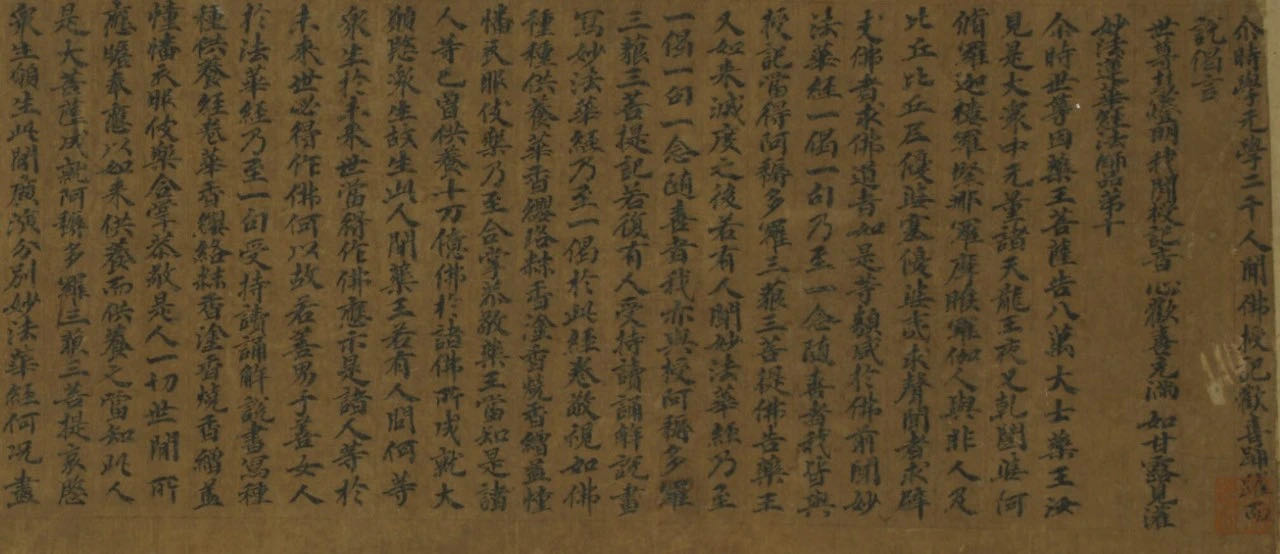 尒時學无學二千人聞佛授記歡喜踊躍而
說偈言
世尊慧燈明我聞授記音心歡喜充滿如甘露見灌
妙法蓮華經法師品第十
尒時世尊因藥王菩薩告八萬大士藥王汝
見是大衆中无量諸天龍王夜叉乹闥婆阿
脩羅迦樓羅緊那羅摩睺羅伽人與非人及
比丘比丘尼優婆塞優婆夷求聲聞者求辟
支佛者求佛道者如是等類咸於佛前聞妙
法華經一偈一句乃至一念隨喜者我皆與
授記當得阿耨多羅三藐三菩提佛告藥王
又如來滅度之後若有人聞妙法華經乃至
一偈一句一念隨喜者我亦與授阿耨多羅
三藐三菩提記若復有人受持讀誦解說書
寫妙法華經乃至一偈於此經卷敬視如佛
種種供養華香瓔珞抹香塗香燒香繒蓋憧
幡衣服伎樂乃至合掌恭敬藥王當知是諸
人等已曾供養十万億佛於諸佛所成就大
願愍衆生故生此人間藥王若有人問何等
衆生於未來世當得作佛應示是諸人等於
未來世必得作佛何以故若善男子善女人
於法華經乃至一句受持讀誦解說書寫種
種供養經卷華香纓絡抹香塗香燒香繒蓋
憧幡衣服伎樂合掌恭敬是人一切世間所
應瞻奉應以如來供養而供養之當知此人
是大菩薩成就阿耨多羅三藐三菩提哀愍
衆生願生此間廣演分別妙法華經何況盡